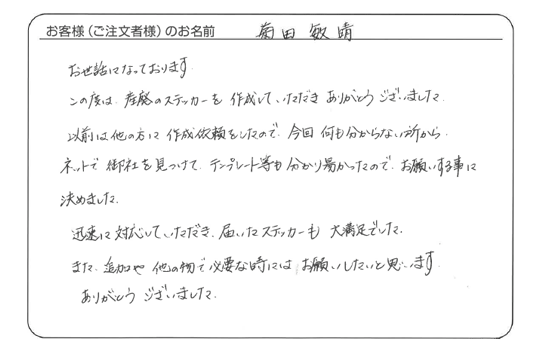 お客様（ご注文者様）のお名前 菊田 敏晴
お世話になっております
この度は、産廃のステッカーを 作成して、いただき ありがとう ございました。
以前は他の方に 作成依頼をしたので、今回 何も分からない所から、
ネットで 御社を見つけて、テンプレート等も分かり易かったので、お願いする事に
決めました。
迅速に対応していただき、届いたステッカーも 大満足でした。
また、追加や 他の物で必要な時には お願いしたいと思います
ありがとう ございました。